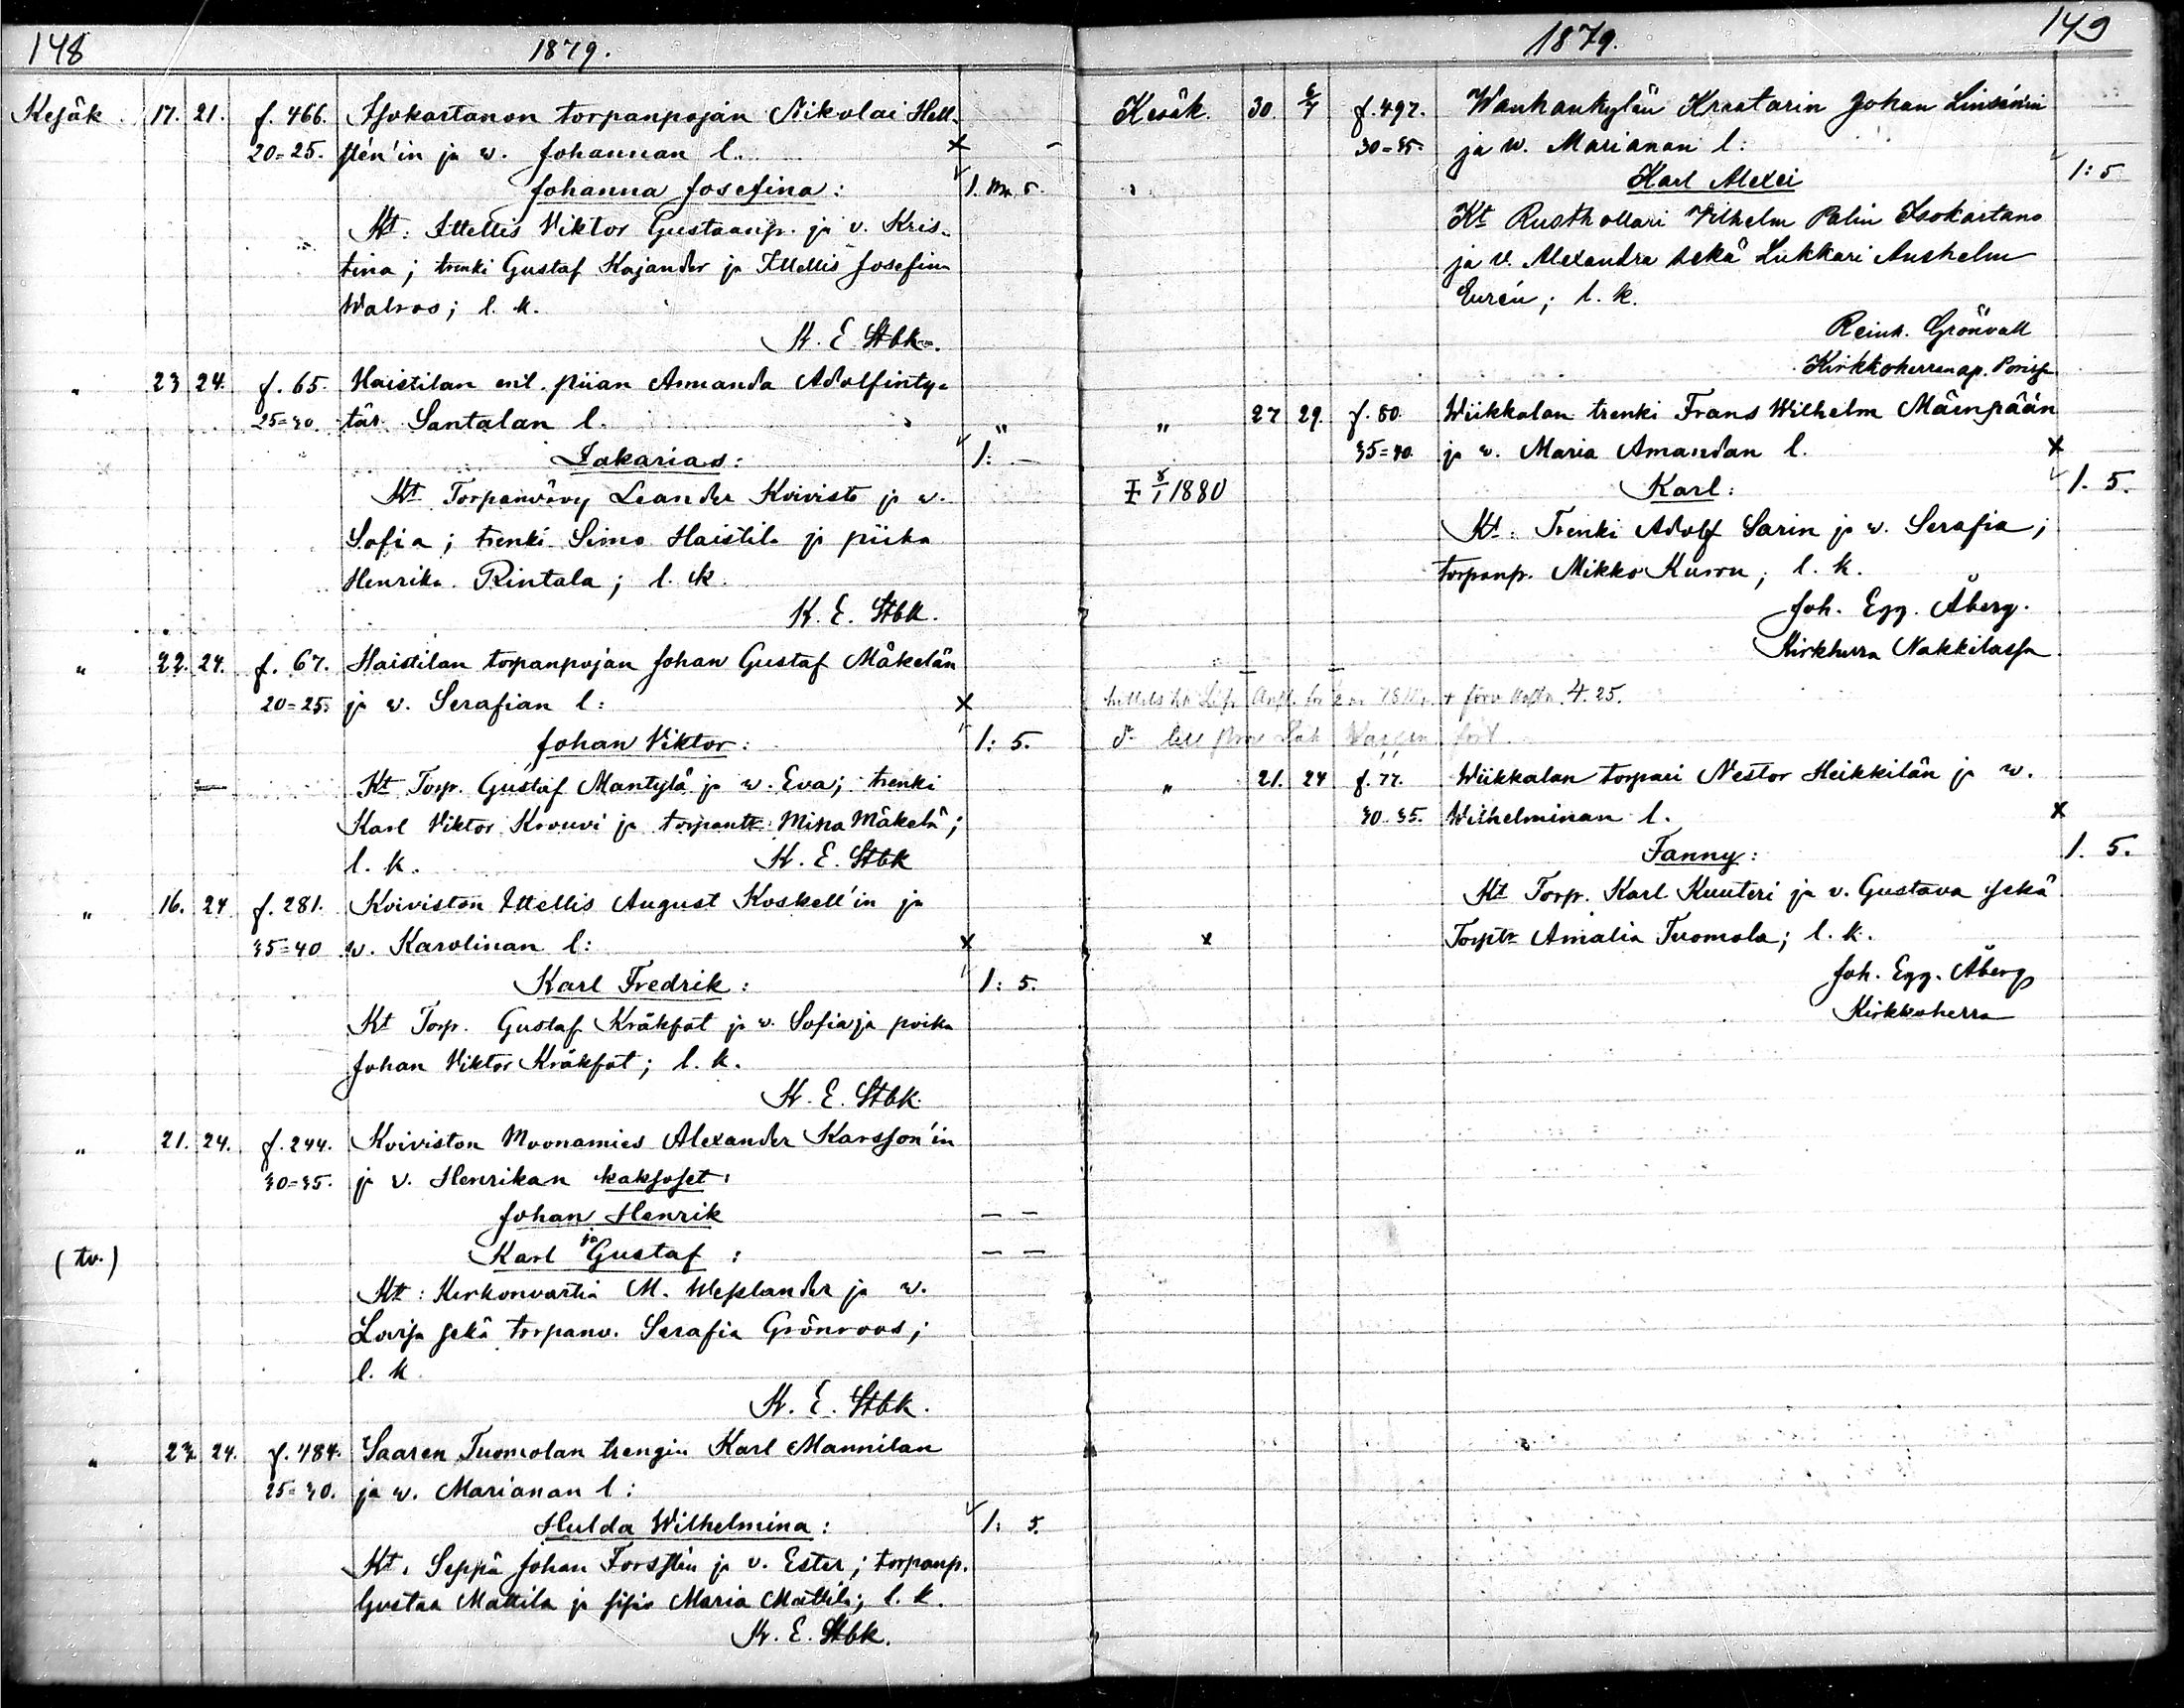 148
1879.
Kesäk 17. 21. f. 466. Isokartanon torpanpojan Nikolai Hell-
20=25. stén'in ja w. Johannan l. x -
Johanna Josefina: 1. m. 5.
Kt: Itellis Viktor Gustaanp. ja v. Kris-
tina; trenki Gustaf Kajander ja Itellis Josefina
Walros; l. k.
K. E. Stbk.
" 23 24. f. 65. Haistilan enl. piian Amanda Adolfinty-
25=30. tär Santalan l. "
Zakarias: 1: -
Kt Torpanvävy Leander Koivisto ja w.
Sofia; trenki Simo Haistila ja piika
Henrika Rintala; l. k.
K. E. Stbk.
" 22. 24. f. 67. Haistilan torpanpojan Johan Gustaf Mäkelän
20=25. ja w. Serafian l: x
Johan Viktor: 1: 5.
Kt Torp. Gustaf Mantylä ja w. Eva; trenki
Karl Viktor Krouvi ja torpantr Mina Mäkelä;
l. k. K. E. Stbk
" 16. 24 f. 281. Koiviston Ittellis August Koskell'in ja
35=40 w. Karolinan l: x
Karl Fredrik: 1: 5.
Kt Torp. Gustaf Kråkfot ja w. Sofia ja poika
Johan Viktor Kråkfot; l. k.
K. E. Stbk.
" 21. 24. f. 244. Koiviston Moonamies Alexander Karsson'in
30=35. ja v. Henrikan kaksoset:
Johan Henrik — —
(tv.) Karl ja Gustaf: — —
Kt: Kirkonvartia M. Weslander ja w.
Lovisa sekä torpanv. Serafia Grönroos;
l. k
K. E. Stbk.
" 23. 24. f. 484. Saaren Tuomolan trengin Karl Mannilan
25=30. ja w. Marianan l:
Hulda Wilhelmina: 1: 5.
Kt. Seppä Johan Forsstén ja v. Ester; torpanp.
Gustaa Mattila ja Maria Mattila; l. k.
K. E. Stbk.
1879.
149
Kesäk. 30. 6/7 f. 497. Wanhankylän Kraatarin Johan Linsénin
30=35. ja w. Marianan l:
Karl Alexei 1: 5
Kt Rusthollari Vilhelm Palin Isokartano
ja v. Alexandra sekä Lukkari Anshelm
Eurén; l. k.
Reinh. Grönvall
Kirkkoherranap. Porissa
" 27 29. f. 80. Wiikkalan trenki Frans Wilhelm Mäenpään
35=40. ja w. Maria Amandan l. x
‡ 8/1 1880 Karl: 1. 5.
Kt: Trenki Adolf Sarin ja w. Serafia;
torpanp. Mikko Kuron; l. k.
Joh. Egg. Åberg.
Kirkherra Nakkilassa
4.25.
" 21. 24 f. 77. Wiikkalan torpari Nestor Heikkilän ja w.
30. 35. Wilhelminan l. x
Fanny: 1. 5.
Kt Torp. Karl Kuuteri ja v. Gustava sekä
x Torptr Amalia Tuomola; l. k.
Joh. Egg. Åberg
Kirkkoherra